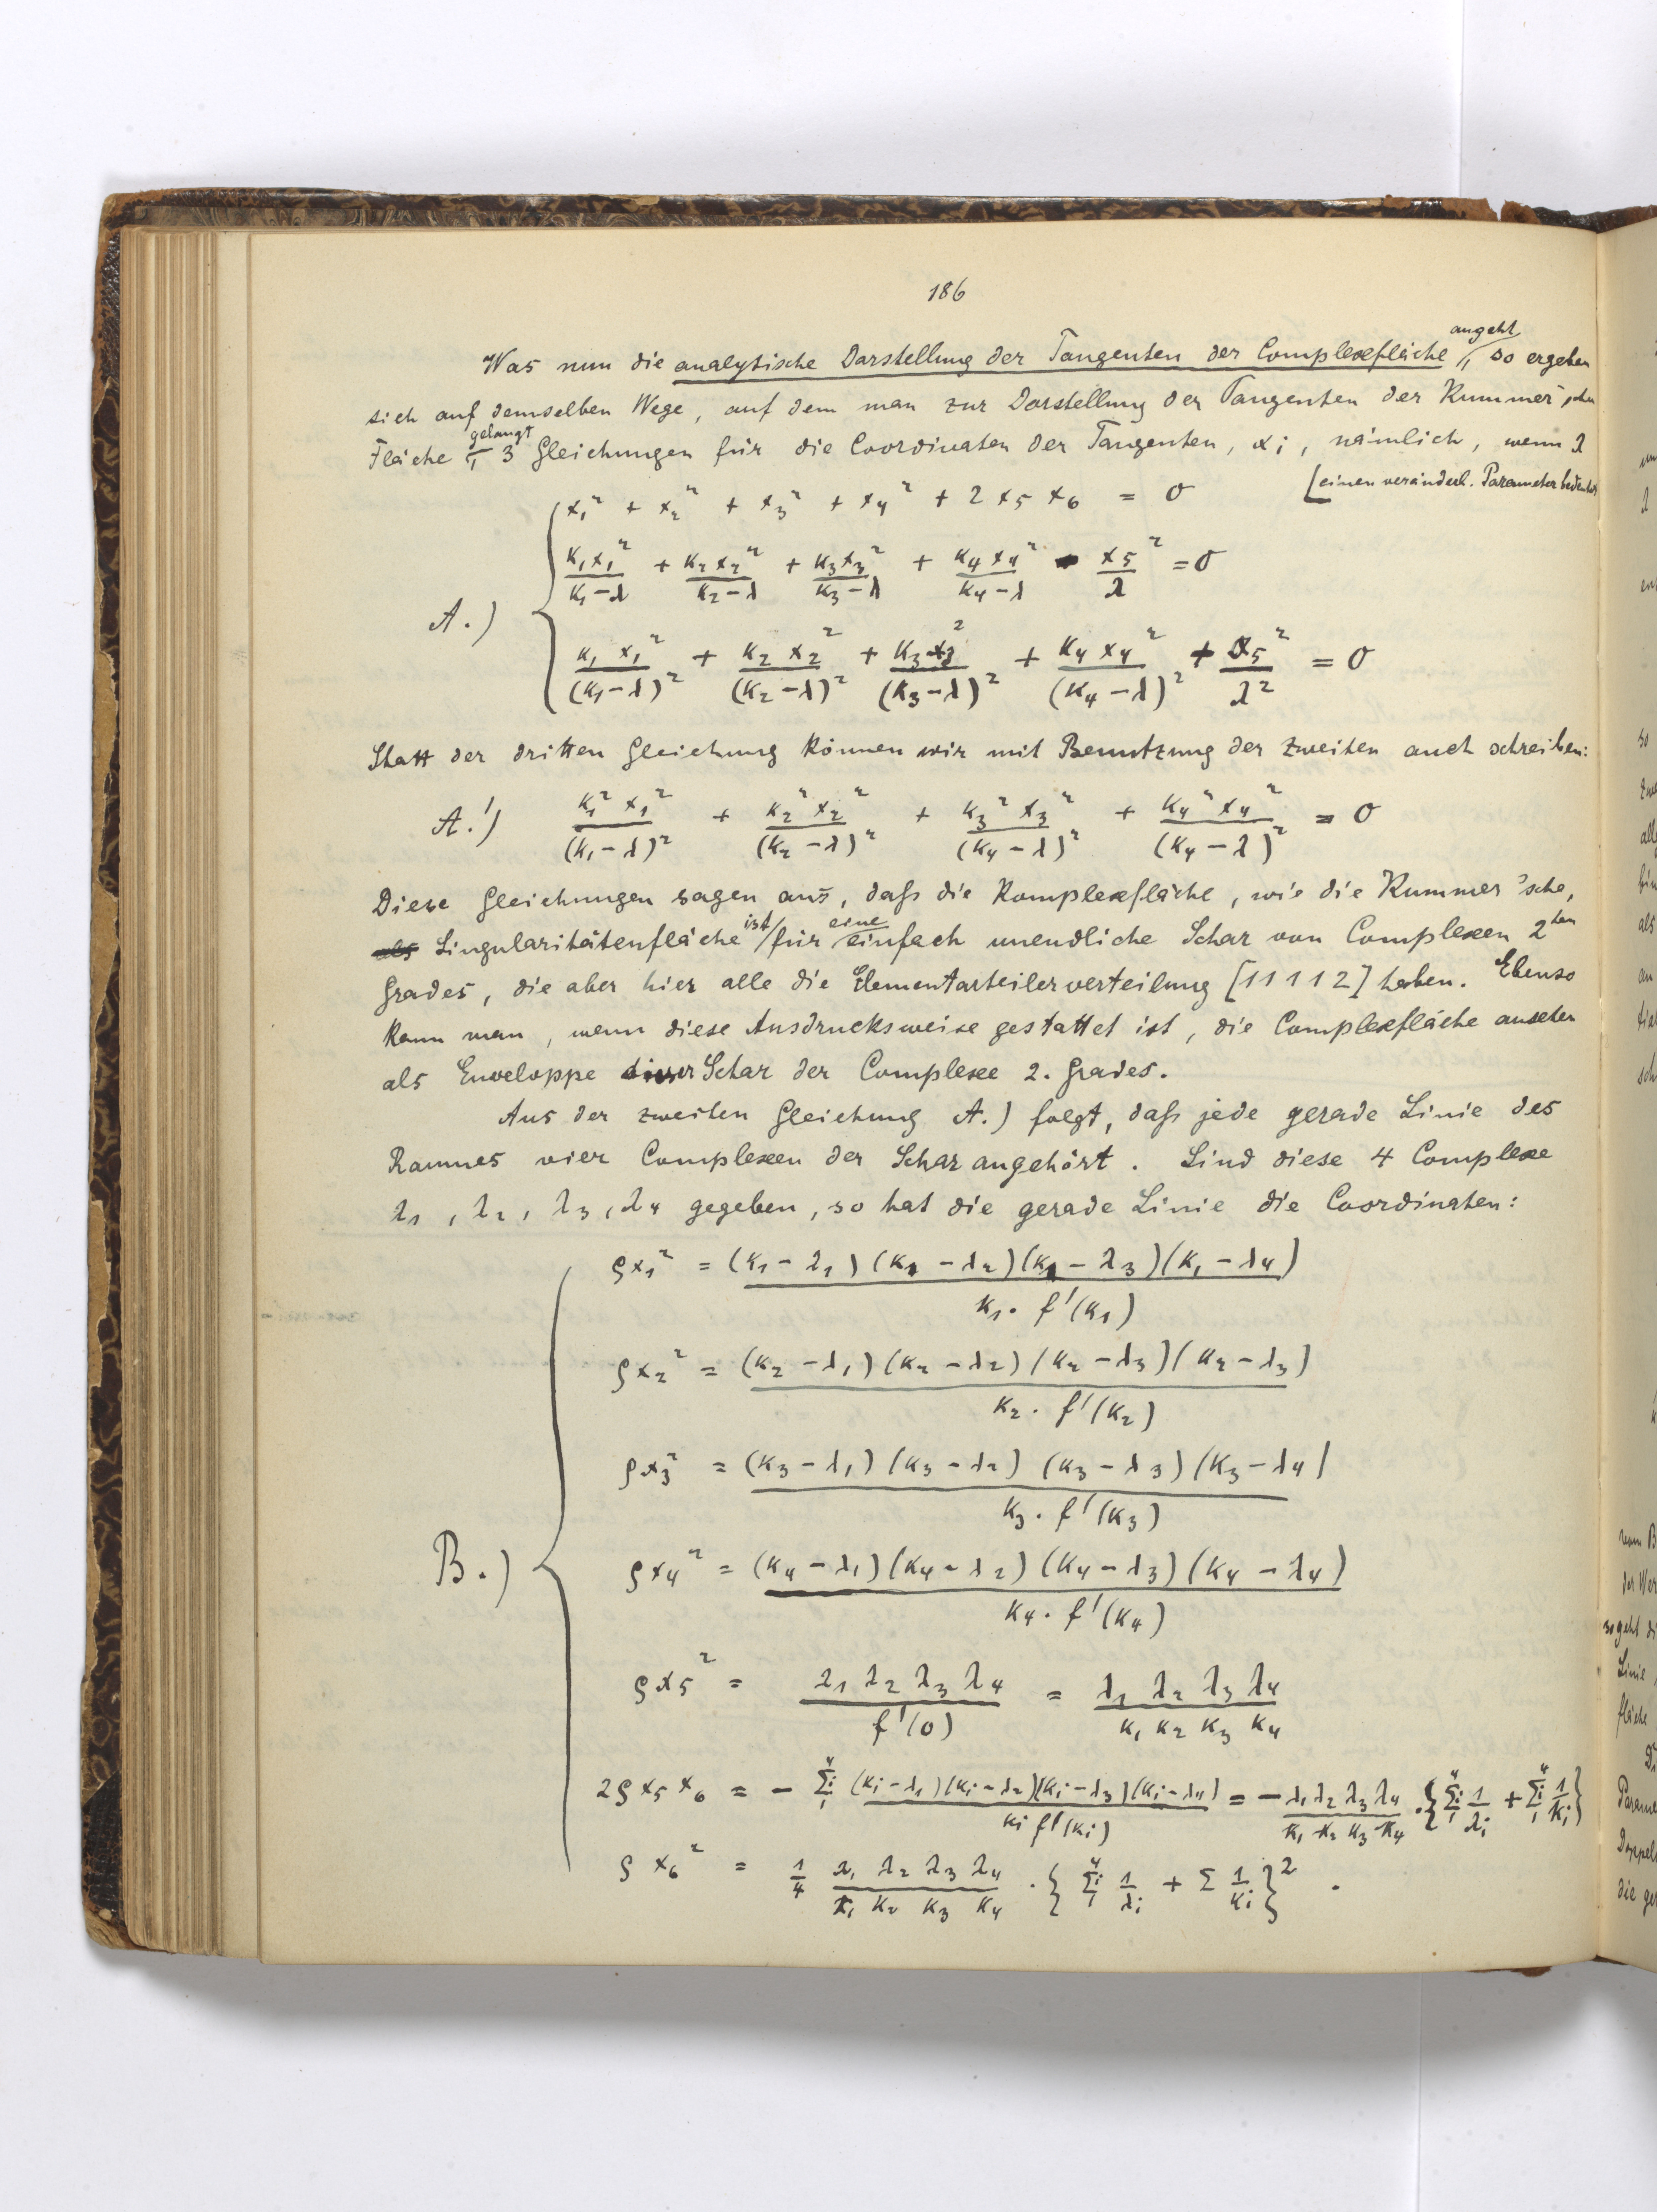 186
Was nun die analytische Darstellung der Tangenten der Complexefläche angeht, so ergeben
sich auf demselben Wege, auf dem man zur Darstellung der Tangenten der Kummer'schen
Fläche gelangt 3 Gleichungen für die Coordinaten der Tangenten, xi, nämlich, wenn λ
[einen veränderl. Parameter bedeutet
x₁² + x₂² + x₃² + x₄² + 2 x₅ x₆ = 0
K₁x₁²/(K₁-λ) + K₂x₂²/(K₂-λ) + K₃x₃²/(K₃-λ) + K₄x₄²/(K₄-λ) - x₅²/λ = 0
A.)
K₁x₁²/(K₁-λ)² + K₂x₂²/(K₂-λ)² + K₃x₃²/(K₃-λ)² + K₄x₄²/(K₄-λ)² + x₅²/λ² = 0
Statt der dritten Gleichung können wir mit Benutzung der zweiten auch schreiben:
A.') K₁²x₁²/(K₁-λ)² + K₂²x₂²/(K₂-λ)² + K₃²x₃²/(K₄-λ)² + K₄²x₄²/(K₄-λ)² = 0
Diese Gleichungen sagen aus, daß die Komplexefläche, wie die Kummer'sche,
als Singularitätenfläche ist für eine einfach unendliche Schar von Complexen 2ten
Grades, die aber hier alle die Elementarteilerverteilung [11112] haben. Ebenso
kann man, wenn diese Ausdrucksweise gestattet ist, die Complexfläche ansehen
als Enveloppe dieser Schar der Complexe 2. Grades.
Aus der zweiten Gleichung A.) folgt, daß jede gerade Linie des
Raumes vier Complexen der Schar angehört. Sind diese 4 Complexe
λ₁, λ₂, λ₃, λ₄ gegeben, so hat die gerade Linie die Coordinaten:
ρx₁² = (K₁-λ₁)(K₁-λ₂)(K₁-λ₃)(K₁-λ₄)/K₁·f'(K₁)
ρx₂² = (K₂-λ₁)(K₂-λ₂)(K₂-λ₃)(K₂-λ₃)/K₂·f'(K₂)
ρx₃² = (K₃-λ₁)(K₃-λ₂)(K₃-λ₃)(K₃-λ₄)/K₃·f'(K₃)
B.) ρx₄² = (K₄-λ₁)(K₄-λ₂)(K₄-λ₃)(K₄-λ₄)/K₄·f'(K₄)
ρx₅² = λ₁λ₂λ₃λ₄/f'(0) = λ₁λ₂λ₃λ₄/K₁K₂K₃K₄
2ρx₅x₆ = - Σᵢ₁⁴ (Kᵢ-λ₁)(Kᵢ-λ₂)(Kᵢ-λ₃)(Kᵢ-λ₄)/Kᵢ f'(Kᵢ) = - λ₁λ₂λ₃λ₄/K₁K₂K₃K₄ · {Σᵢ₁⁴ 1/λᵢ + Σᵢ₁⁴ 1/Kᵢ}
ρx₆² = 1/4 λ₁λ₂λ₃λ₄/K₁K₂K₃K₄ · {Σᵢ₁⁴ 1/λᵢ + Σ 1/Kᵢ}².